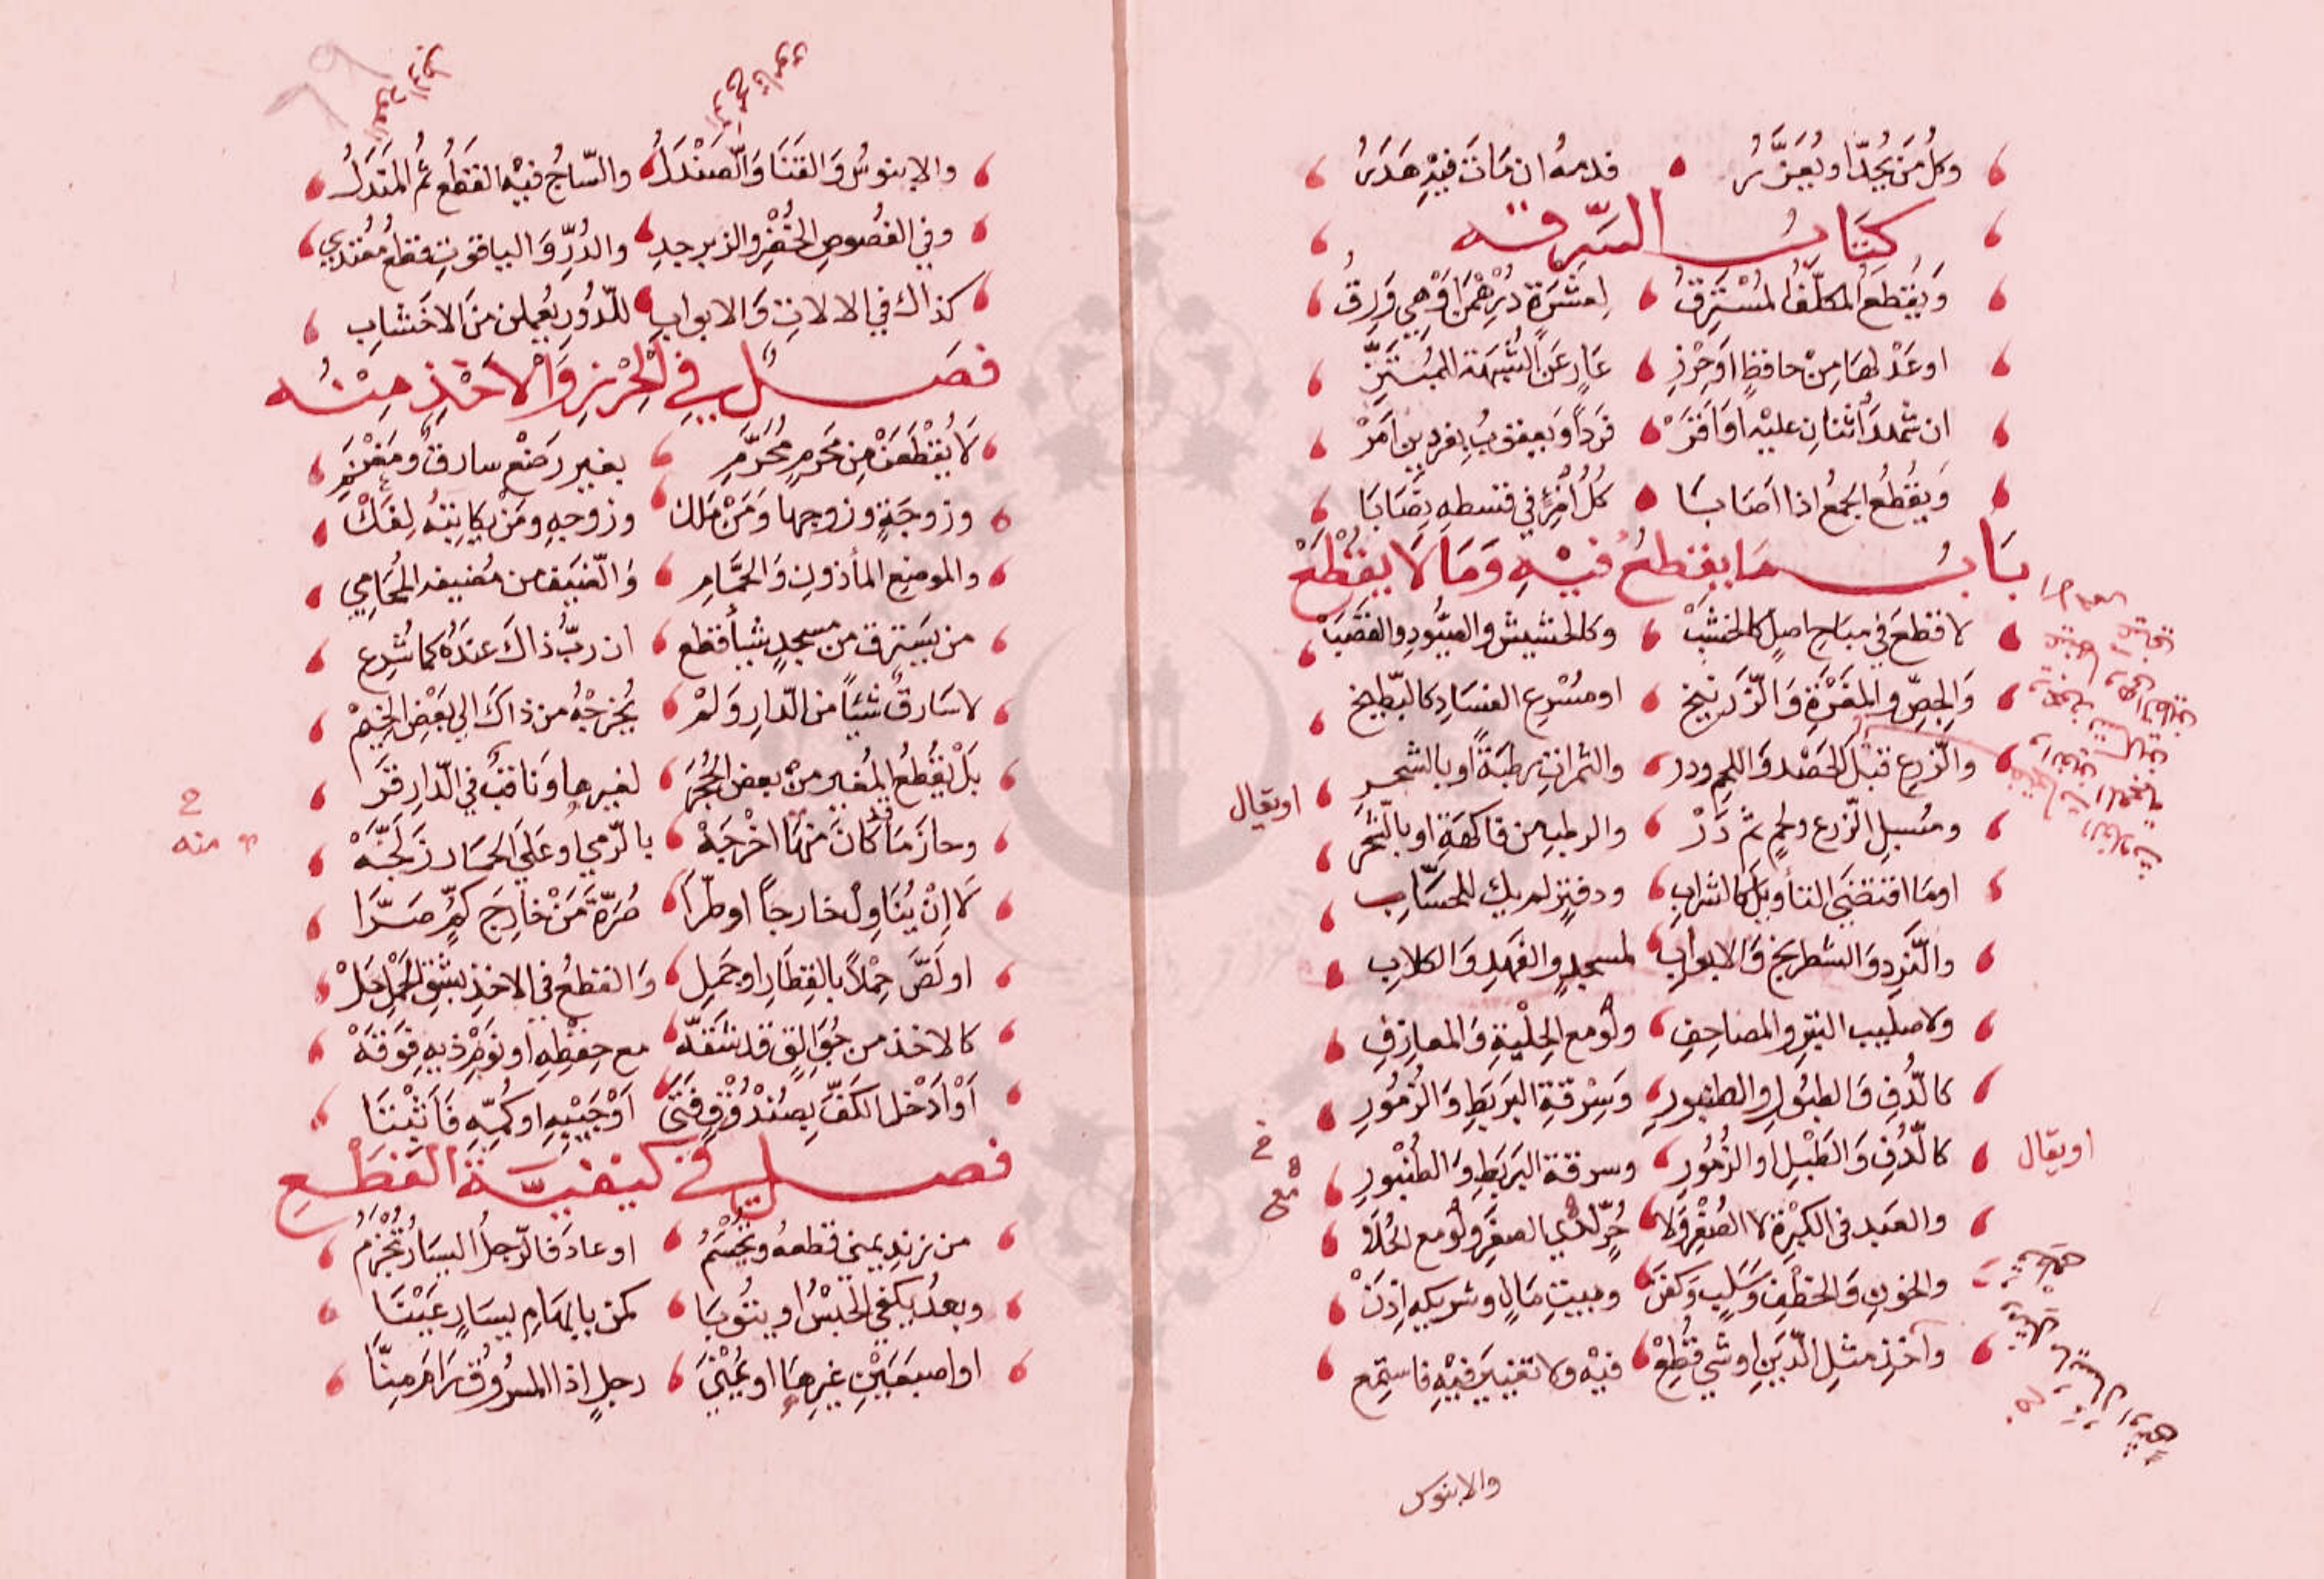 وكل من يحد او يعزر فدمه ان مات فيه هدر
كتاب السرقه
ويقطع المكلف المسترق لعشرة درهما او هي ورق
او عدلها من حافظ او حرز عار عن الشبهة
ان شهد اثنان عليه او اقر فردا ويعقوب بفردين امر
ويقطع الجمع اذا اصابا كل امرئ في قسطه نصابا
باب ما يقطع فيه وما لا يقطع
لا قطع في مباح اصل كالخشب وكالحشيش والصيود والقصب
والجص والمغرة والزرنيخ او مسرع الفساد كالبطيخ
والزرع قبل الحصد واللحم ودر والثمرات رطبة او بالشجر
اويقال
وسنبل الزرع ولحم ثم در والرطب من فاكهة او بالشجر
او ما اقتضى التأويل كالشراب ودفتر لم يك للحساب
والنرد والشطرنج والابواب لمسجد والفهد والكلاب
ولا صليب التبر والمصاحف ولو مع الحلية والمعازف
كالدف والطبول والطنبور وسرقة البربط والزمور
اويقال
كالدف والطبل او الزمور وسرقة البربط والطنبور
والعبد في الكبر لا الصغر ولا حر لدي الصغر ولو مع الحلا
والخون والخطف وسلب وكفن وبيت مال وشريكه اذن
وآخذ مثل الدين او شي قطع فيه ولا تغيير فيه فاستمع
والابنوس
والابنوس والقنا والصندل والساج فيه القطع ثم المندل
وفي الفصوص الخضر والزبرجد والدر والياقوت قطع مقتدي
كذاك في الالات والابواب للدور يعملن من الاخشاب
فصل في الحرز والاخذ منه
لا يقطعن من محرم محرم بغير رضع سارق ومغنم
وزوجة وزوجها ومن ملك وزوجه ومن يكاتبه لفك
والموضع المأذون والحمام والضيف من مضيفه المحامي
من يسترق من مسجد شيأ قطع ان رب ذاك عنده كما شرع
لا سارق شيئا من الدار ولم يخرجه من ذاك الي بعض الخيم
بل يقطع المغير من بعض الحجر لغيرها وناقب في الدار قر
وحاز ما قد كان منها اخرجه بالرمي او على الحمار
منه
لا ان يناول خارجا او طرا صرة من خارج كم صرا
او لص حملا بالقطار او جمل والقطع في الاخذ بشق الحمل حل
كالاخذ من جوالق قد شقه مع حفظه او نوم ذيه فوقه
او ادخل الكف بصندوق فتى او جيبه او كمه فاثبتا
فصل في كيفية القطع
من زند يمنى قطعه ويحسم او عاد فالرجل اليسار تجزم
وبعد يكفي الحبس او يتوبا كمن بابهام يسار عيبتا
او اصبعين غيرها او يمنى رجل اذا المسروق رام منا